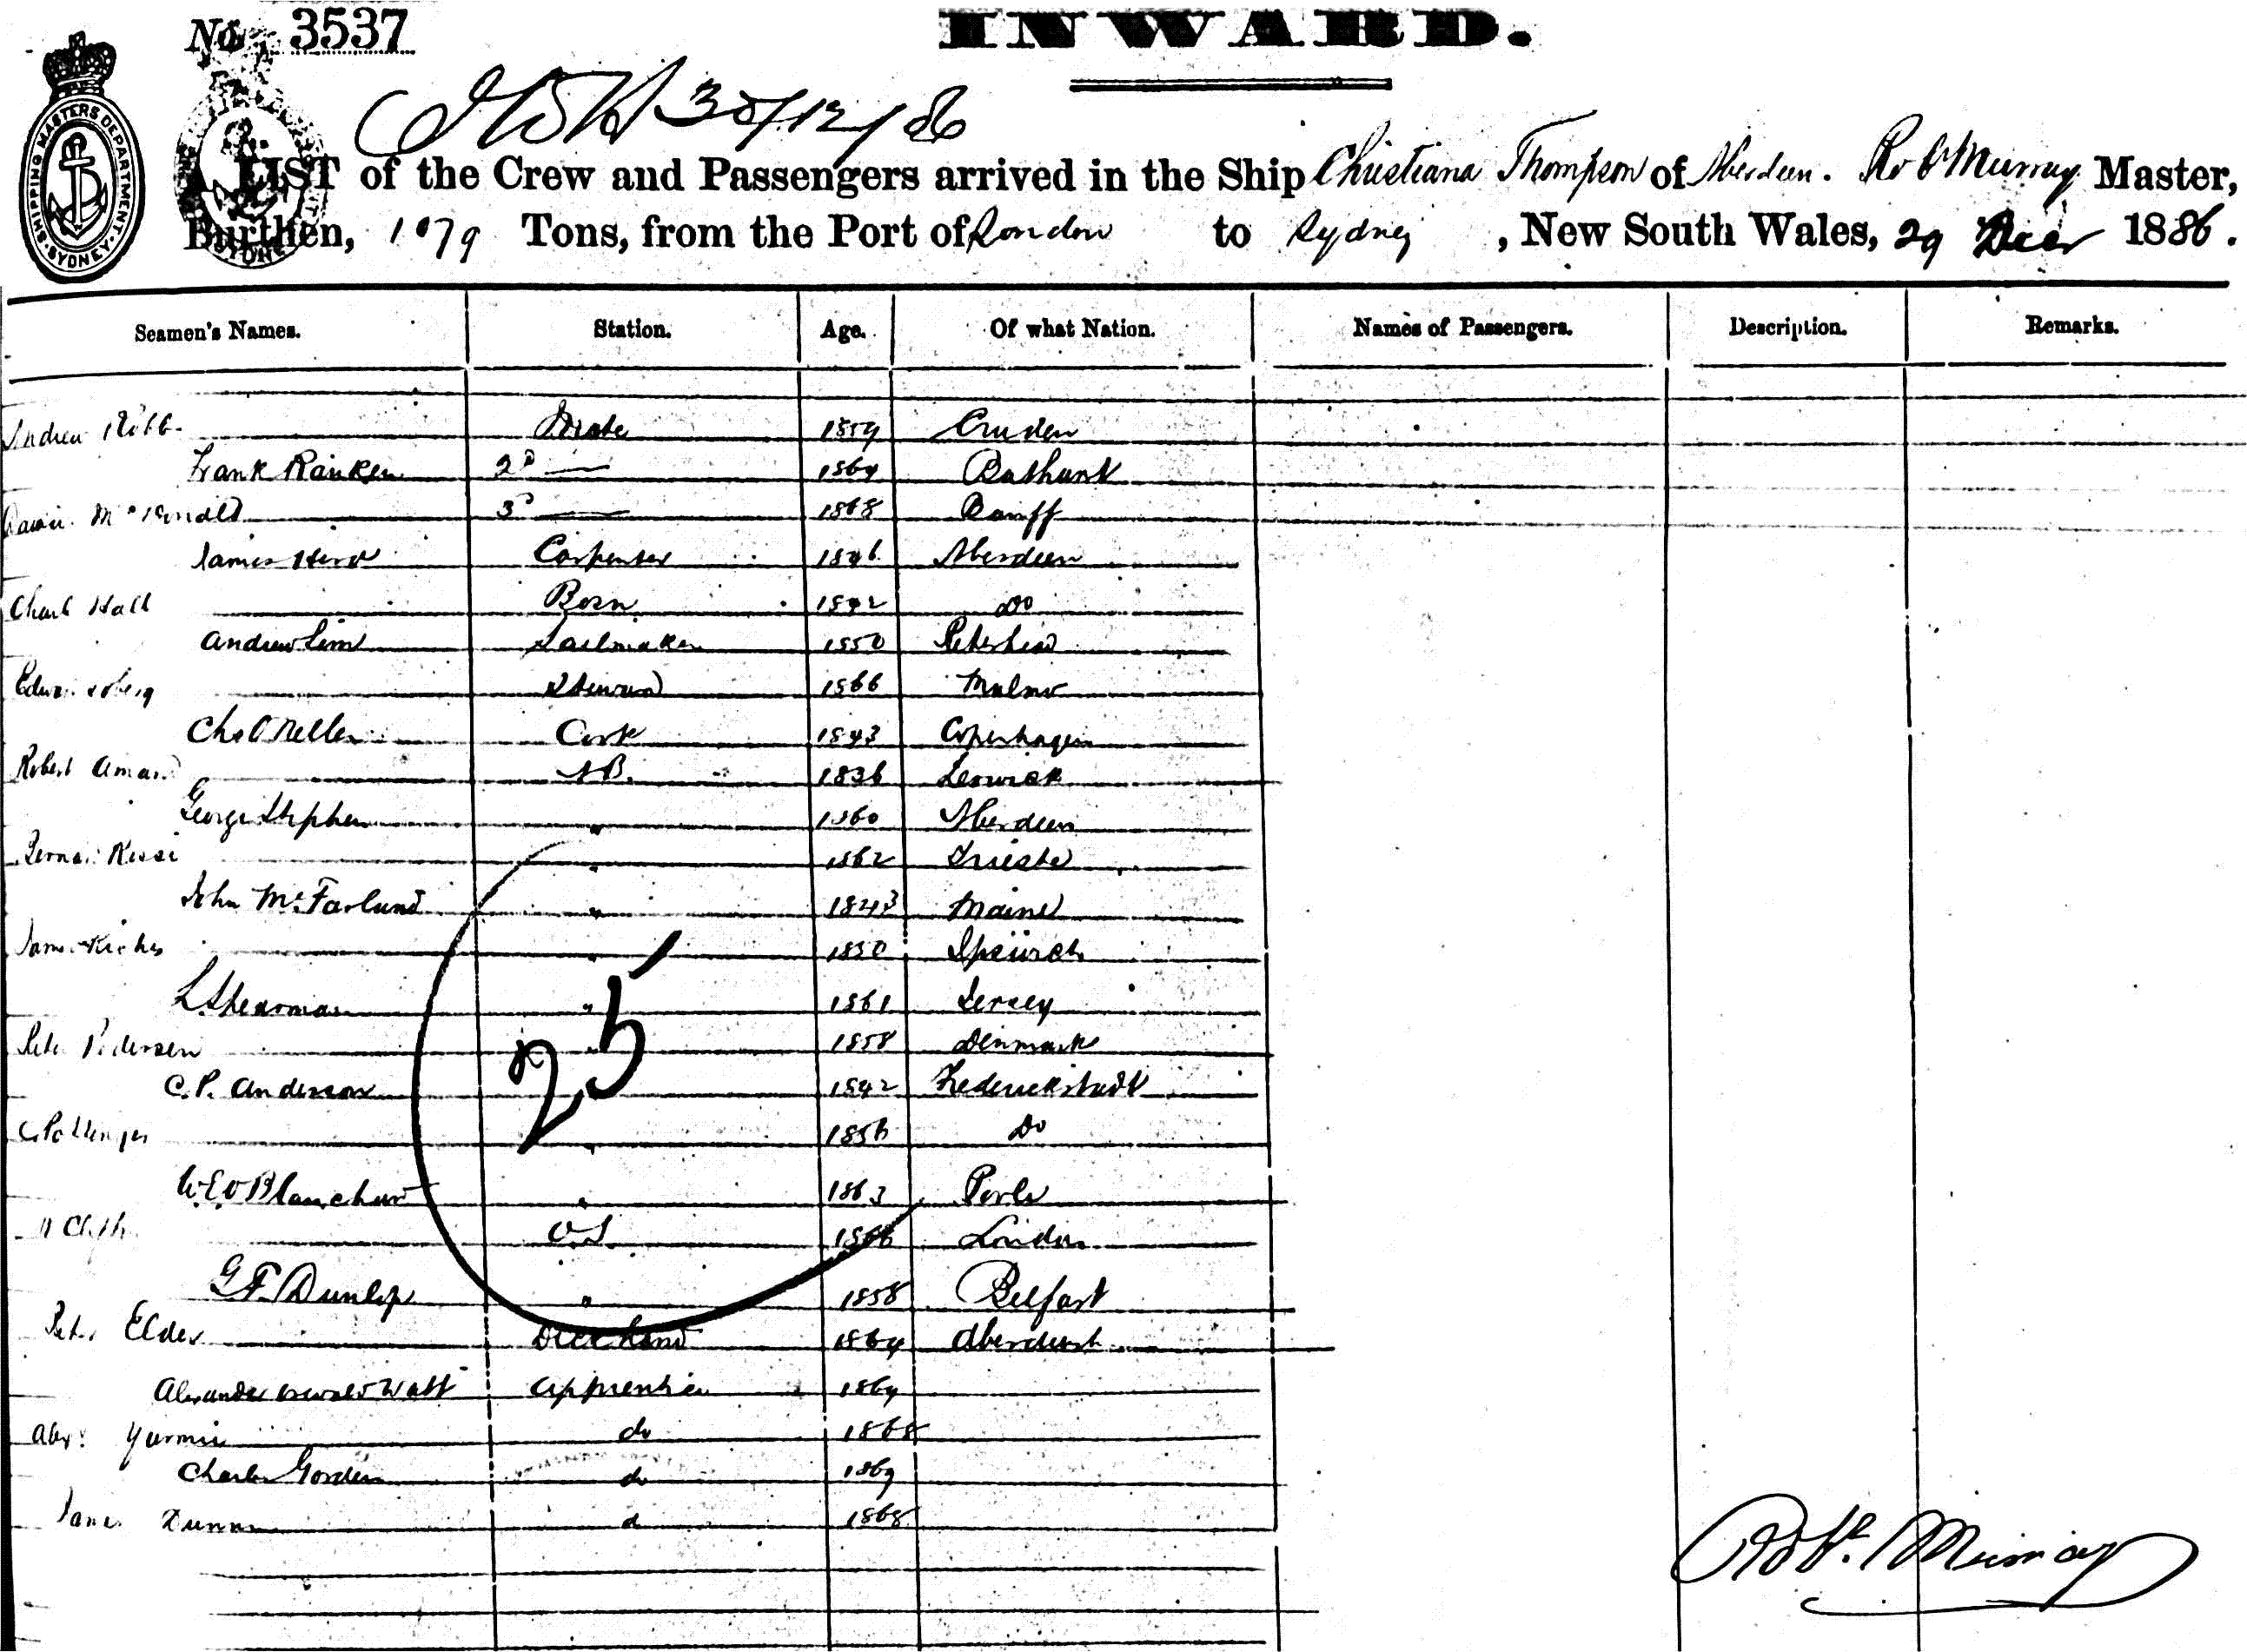 No. 3537
INWARD.
30/12/86
SHIPPING MASTERS DEPARTMENT. SYDNEY
A LIST of the Crew and Passengers arrived in the Ship Christiana Thompson of Aberdeen. Robt Murray Master,
Burthen, 1079 Tons, from the Port of London to Sydney, New South Wales, 29 Decr 1886.
Seamen's Names. Station. Age. Of what Nation. Names of Passengers. Description. Remarks.
Andrew Robb Mate 1859 Cruden
Frank Ranken 2d 1864 Bathurst
3d 1868 Banff
James Hird Carpenter 1846 Aberdeen
Charls Hall Bosn 1842 Do
Andrew Sim Sailmaker 1850 Peterhead
Steward 1866 Malmo
Cook 1843 Copenhagen
Robert AB. 1836 Lerwick
George Stephen " 1860 Aberdeen
" 1862 Trieste
John McFarland " 1843 Maine
James " 1850 Ipswich
L. Shearman " 1861 Jersey
25
Peter Pedersen " 1858 Denmark
C. P. Anderson " 1842 Frederickstadt
" 1856 Do
Blanchard " 1863
O.S. 1866 London
G F Dunlop " 1858 Belfast
Peter Elder Deck hand 1864
Alexander Oswald Watt Apprentice 1864
Alexr do 1868
Charles Gordon do 1869
James Dunn d 1868
Robt. Murray